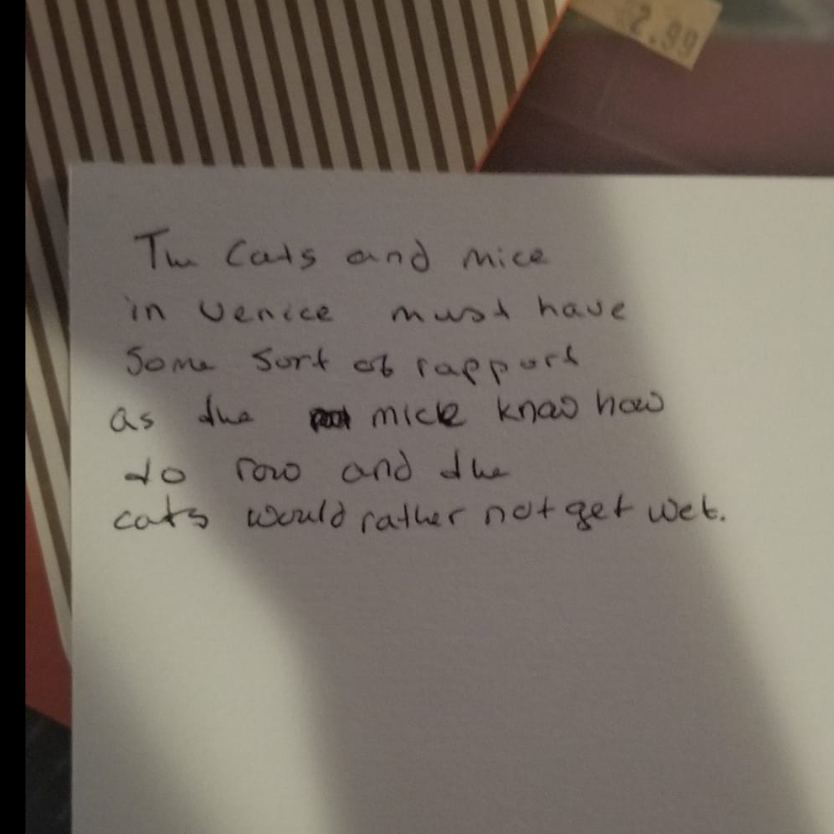 2.99
The Cats and mice
in Venice must have
Some Sort of rapport
as the mice know how
to row and the
cats would rather not get wet.